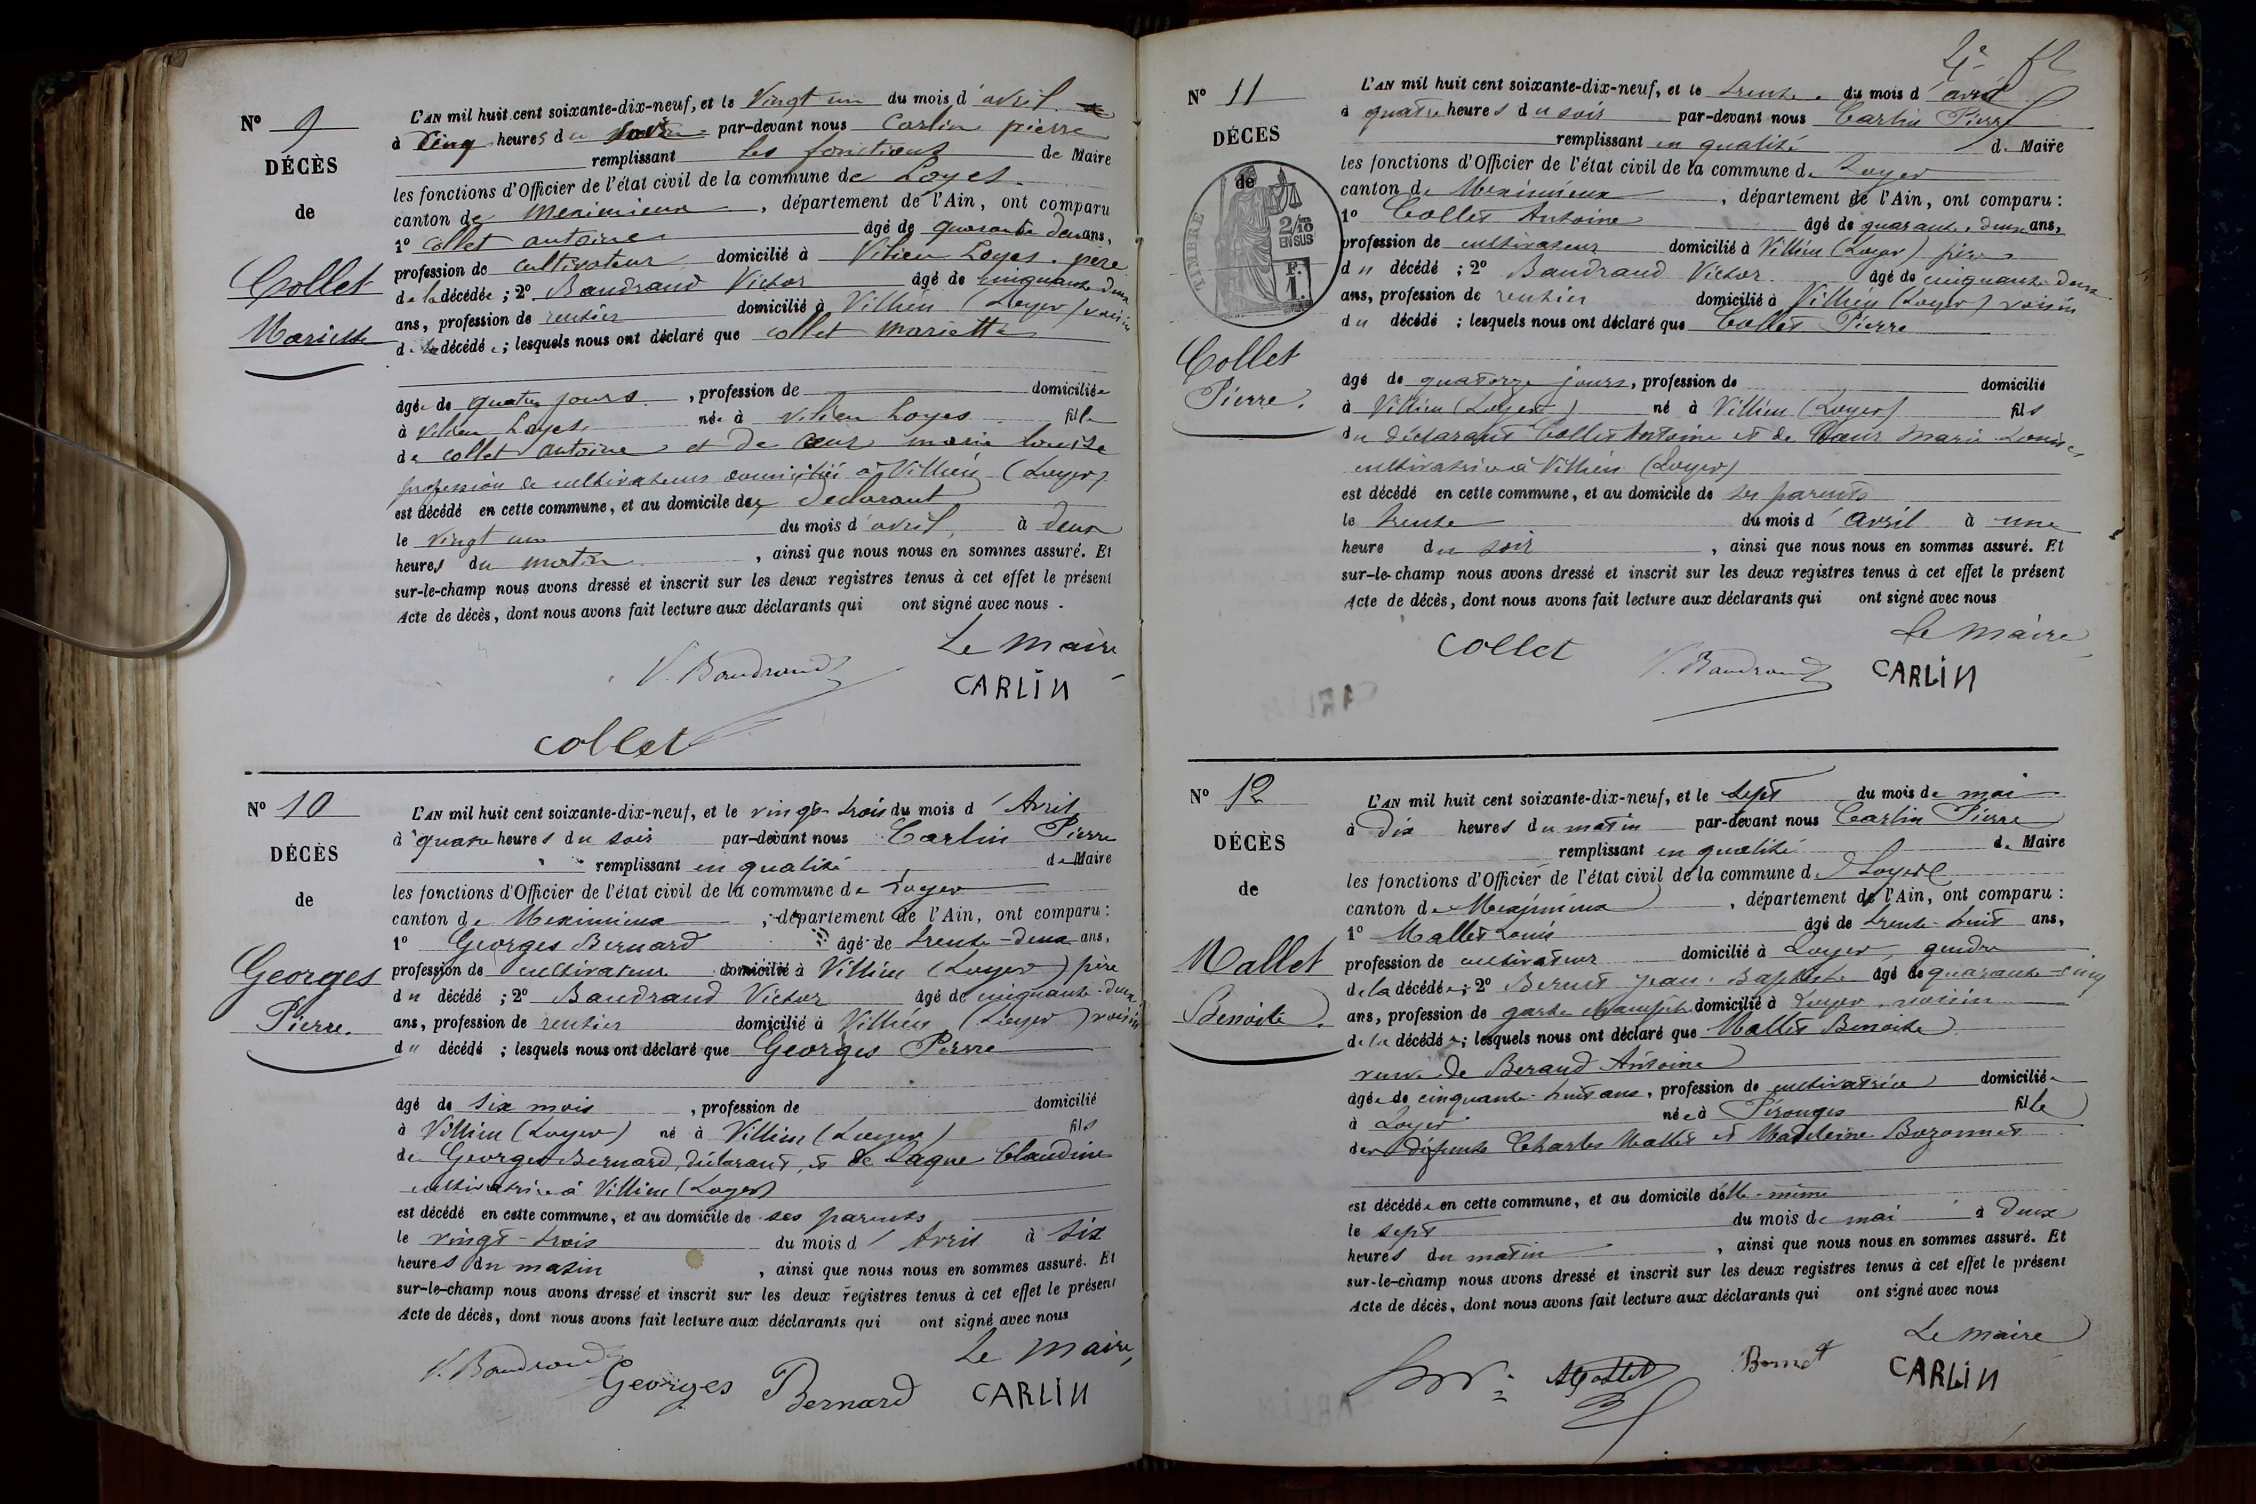 N° 9
DÉCÈS
de
Collet
Mariette
L'AN mil huit cent soixante-dix-neuf, et le Vingt un du mois d'avril
à Cinq heures du soir par-devant nous Carlin pierre
remplissant les fonctions de Maire
les fonctions d'Officier de l'état civil de la commune de Loyes
canton de Meximieux, département de l'Ain, ont comparu
1° Collet antoine âgé de quarante deux ans,
profession de cultivateur domicilié à Vilieu Loyes. père
de la décédée ; 2° Baudrand Victor âgé de cinquante deux
ans, profession de rentier domicilié à Villieu (Loyes) voisin
de la décédée ; lesquels nous ont déclaré que collet Mariette
âgée de quatre jours, profession de domiciliée
à Vilieu Loyes née à Vilieu Loyes fille
de collet antoine et de cœur marie louise
profession de cultivateurs domiciliés à Villieu (Loyes)
est décédé en cette commune, et au domicile des declarant
le vingt un du mois d'avril, à deux
heures du matin, ainsi que nous nous en sommes assuré. Et
sur-le-champ nous avons dressé et inscrit sur les deux registres tenus à cet effet le présent
Acte de décès, dont nous avons fait lecture aux déclarants qui ont signé avec nous.
Le Maire
V. Baudrand
CARLIN
collet
N° 10
DÉCÈS
de
Georges
Pierre.
L'AN mil huit cent soixante-dix-neuf, et le vingt-trois du mois d'Avril
à quatre heures du soir par-devant nous Carlin Pierre
remplissant en qualité de Maire
les fonctions d'Officier de l'état civil de la commune de Loyes
canton de Meximieux, département de l'Ain, ont comparu :
1° Georges Bernard âgé de trente-deux ans,
profession de cultivateur domicilié à Villieu (Loyes) père
du décédé ; 2° Baudrand Victor âgé de cinquante-deux
ans, profession de rentier domicilié à Villieu (Loyes) voisin
du décédé ; lesquels nous ont déclaré que Georges Pierre
âgé de six mois, profession de domicilié
à Villieu (Loyes) né à Villieu (Loyes) fils
de Georges Bernard, déclarant, et de Lagne Claudine
cultivatrice à Villieu (Loyes)
est décédé en cette commune, et au domicile de ses parents
le vingt-trois du mois d'Avril à six
heures du matin, ainsi que nous nous en sommes assuré. Et
sur-le-champ nous avons dressé et inscrit sur les deux registres tenus à cet effet le présent
Acte de décès, dont nous avons fait lecture aux déclarants qui ont signé avec nous
Le Maire,
V. Baudrand Georges Bernard CARLIN
N° 11
DÉCES
de
TIMBRE
2/10
EN SUS
F.
1.
Collet
Pierre.
L'AN mil huit cent soixante-dix-neuf, et le trente du mois d'avril
à quatre heures du soir par-devant nous Carlin Pierre
remplissant en qualité de Maire
les fonctions d'Officier de l'état civil de la commune de Loyes
canton de Meximieux, département de l'Ain, ont comparu :
1° Collet Antoine âgé de quarante-deux ans,
profession de cultivateur domicilié à Villieu (Loyes) père
du décédé ; 2° Baudrand Victor âgé de cinquante-deux
ans, profession de rentier domicilié à Villieu (Loyes) voisin
du décédé ; lesquels nous ont déclaré que Collet Pierre
âgé de quatorze jours, profession de domicilié
à Villieu (Loyes) né à Villieu (Loyes) fils
du déclarant Collet Antoine et de Cœur Marie Louise
cultivatrice à Villieu (Loyes)
est décédé en cette commune, et au domicile de ses parents
le trente du mois d'Avril à une
heure du soir, ainsi que nous nous en sommes assuré. Et
sur-le-champ nous avons dressé et inscrit sur les deux registres tenus à cet effet le présent
Acte de décès, dont nous avons fait lecture aux déclarants qui ont signé avec nous
Le Maire
Collet V. Baudrand CARLIN
N° 12
DÉCÈS
de
Mallet
Benoite.
L'AN mil huit cent soixante-dix-neuf, et le sept du mois de mai
à Dix heures du matin par-devant nous Carlin Pierre
remplissant en qualité de Maire
les fonctions d'Officier de l'état civil de la commune de Loyes
canton de Meximieux, département de l'Ain, ont comparu :
1° Mallet Louis âgé de trente-huit ans,
profession de cultivateur domicilié à Loyes, gendre
de la décédée ; 2° Bernet Jean-Baptiste âgé de quarante-cinq
ans, profession de garde champêtre domicilié à Loyes, voisin
de la décédée ; lesquels nous ont déclaré que Mallet Benoite
veuve de Beraud Antoine
âgée de cinquante-huit ans, profession de cultivatrice domiciliée
à Loyes née à Pérouges fille
des défunts Charles Mallet et Madeleine Bozonnet
est décédée en cette commune, et au domicile d'elle-même
le sept du mois de mai à deux
heures du matin, ainsi que nous nous en sommes assuré. Et
sur-le-champ nous avons dressé et inscrit sur les deux registres tenus à cet effet le présent
Acte de décès, dont nous avons fait lecture aux déclarants qui ont signé avec nous
Le Maire
Bernet CARLIN